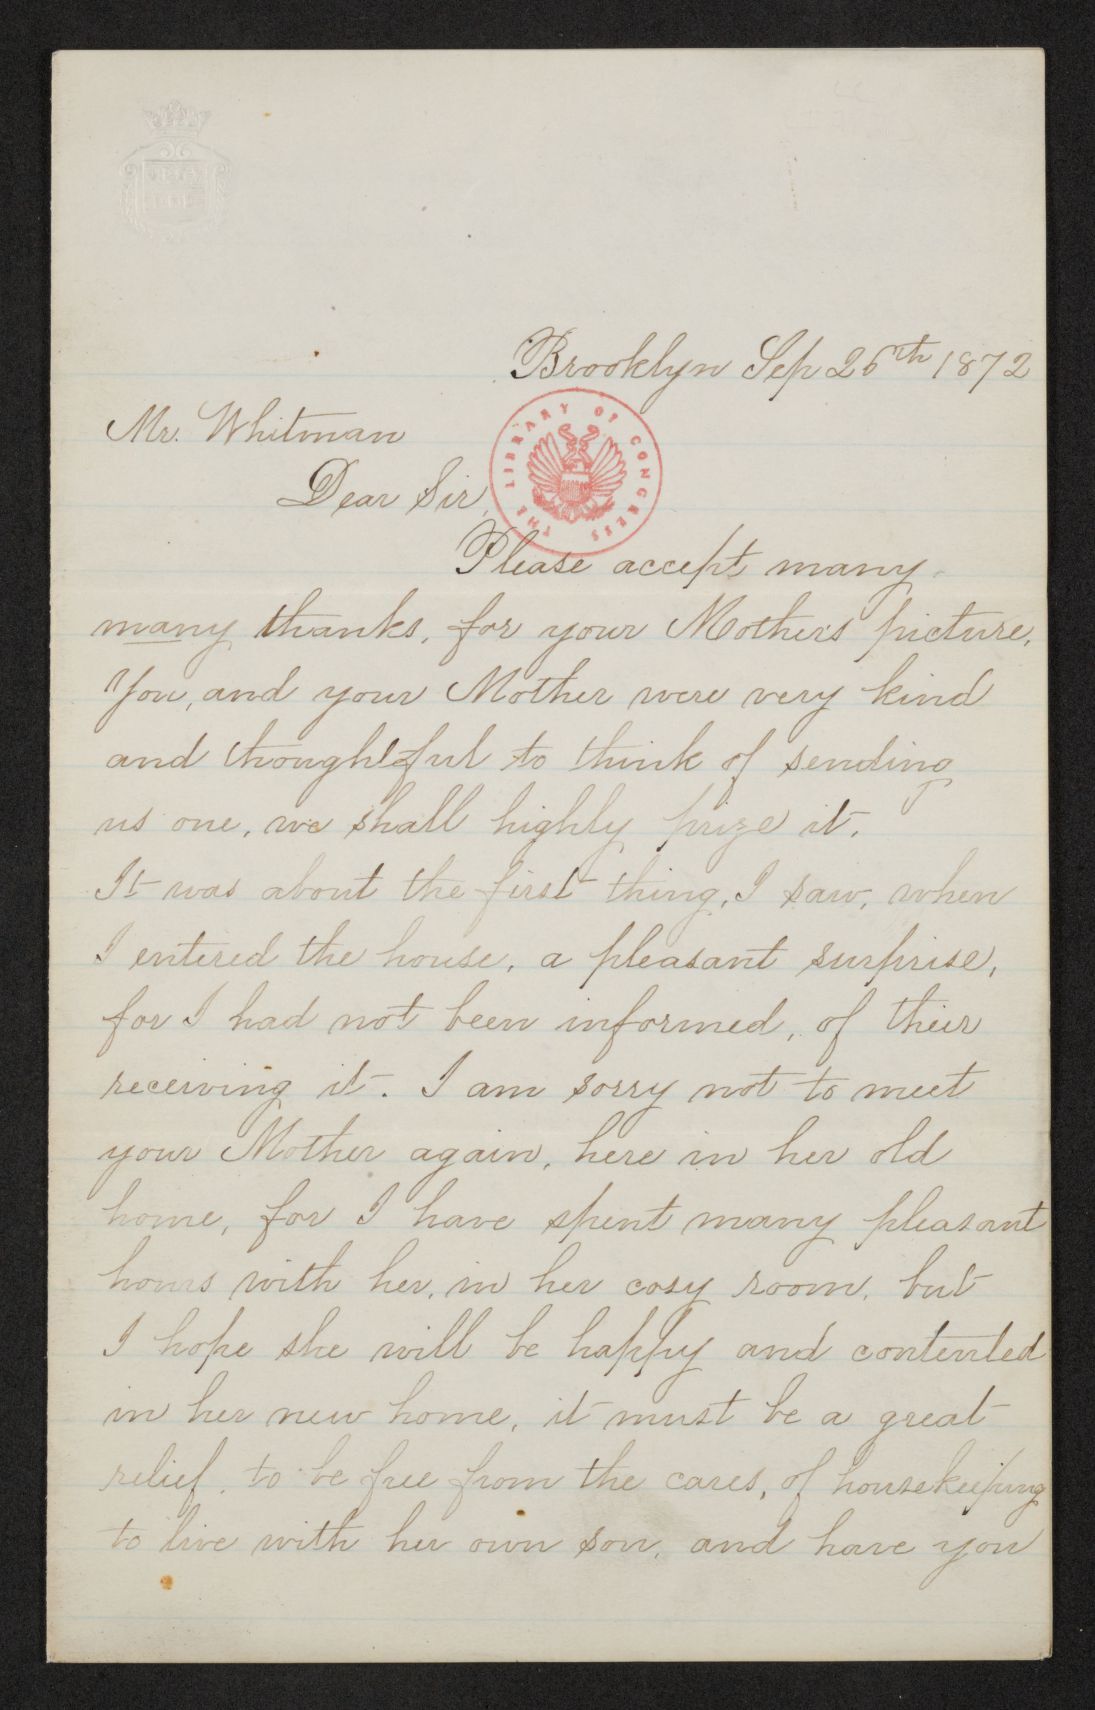 Brooklyn Sep 26th 1872
Mr. Whitman
Dear Sir,
THE LIBRARY OF CONGRESS
Please accept many
many thanks, for your Mother's picture.
You, and your Mother were very kind
and thoughtful to think of sending
us one, we shall highly prize it.
It was about the first thing, I saw, when
I entered the house, a pleasant surprise,
for I had not been informed, of their
receiving it. I am sorry not to meet
your Mother again, here in her old
home, for I have spent many pleasant
hours with her, in her cosy room, but
I hope she will be happy and contented
in her new home, it must be a great
relief, to be free from the cares, of housekeeping
to live with her own son, and have you